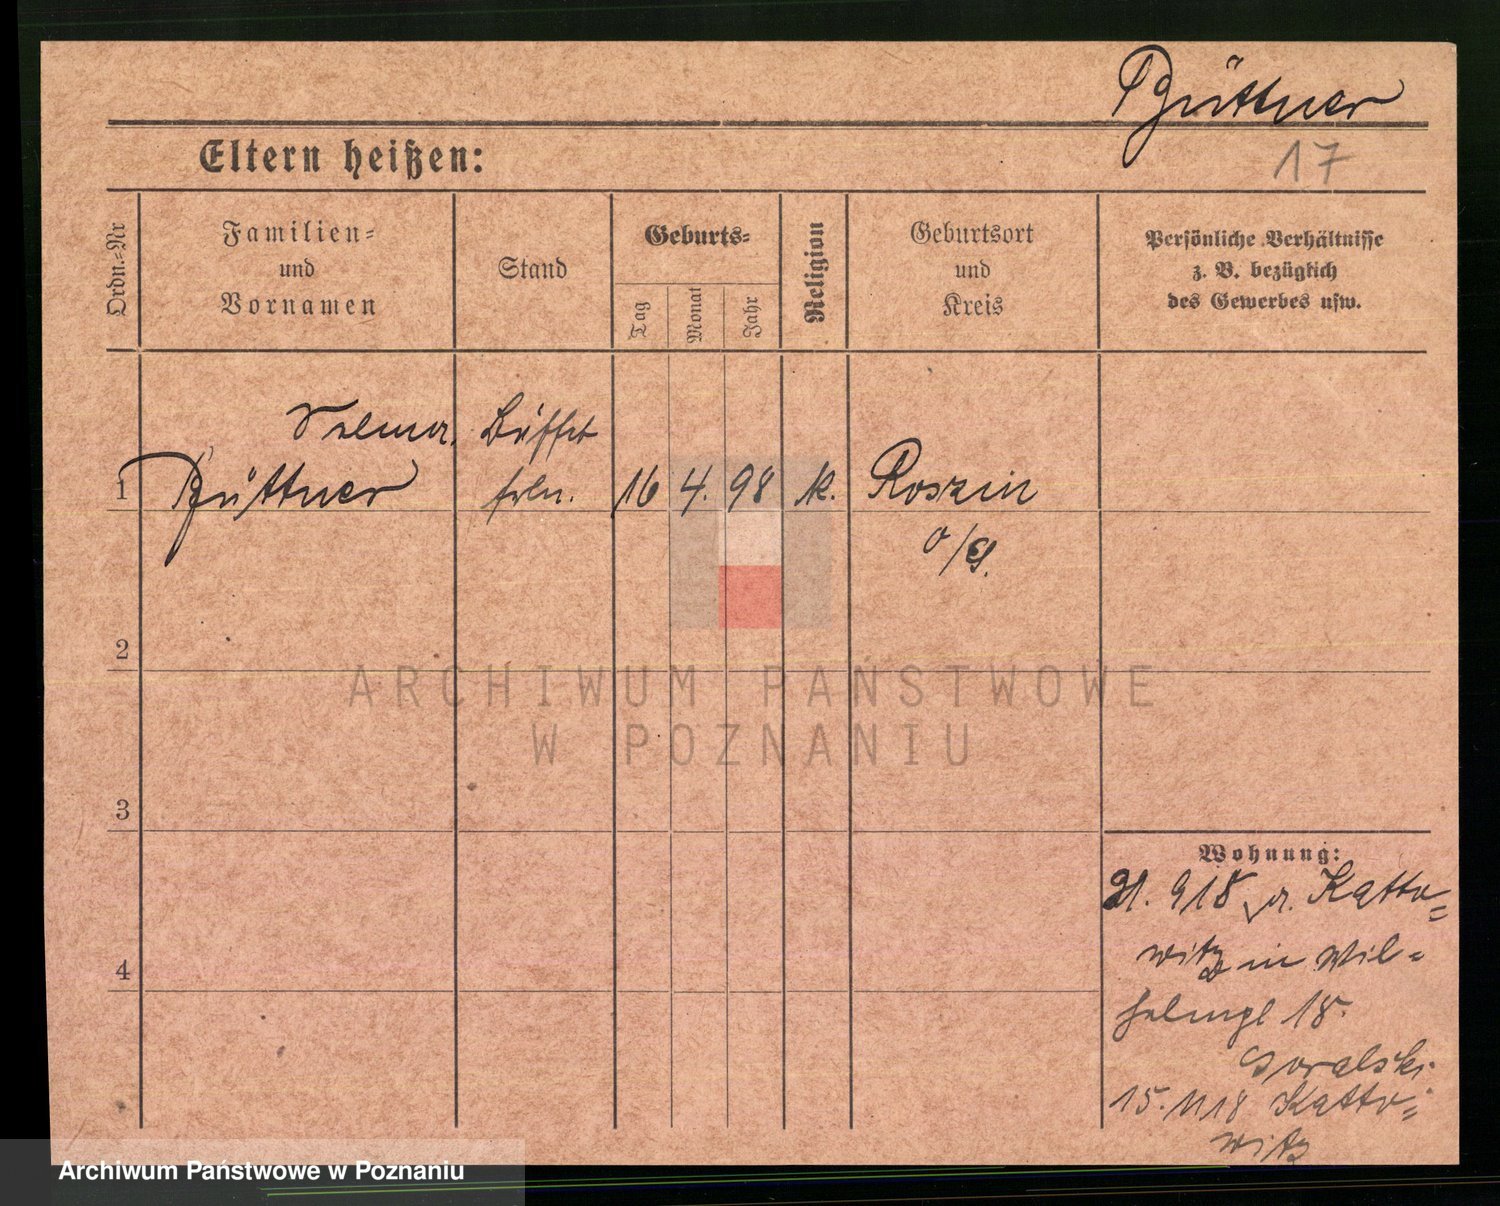 Büttner
Eltern heißen:
17
Ordn.-Nr
Familien-
und
Vornamen
Stand
Geburts-
Tag
Monat
Jahr
Religion
Geburtsort
und
Kreis
Persönliche Verhältnisse
z. B. bezüglich
des Gewerbes usw.
Selma
Büffet
1 Büttner frln. 16 4. 98 k. Roszin
O/S.
2
ARCHIWUM PAŃSTWOWE
W POZNANIU
3
Wohnung:
21. 918 v. Katto-
witz in Wil-
helmpl 18.
Goralski
4
15. 1118 Katto-
witz
Archiwum Państwowe w Poznaniu